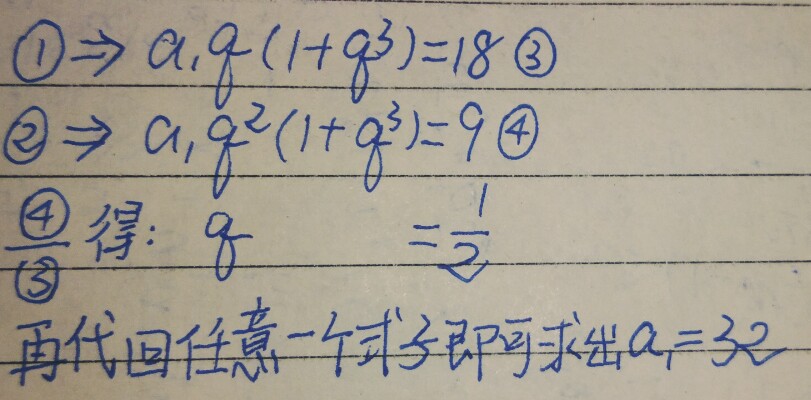 ①⇒ a₁q(1+q³)=18③
②⇒ a₁q²(1+q³)=9④
④/③ 得: q =1/2
再代回任意一个式子即可求出a₁=32